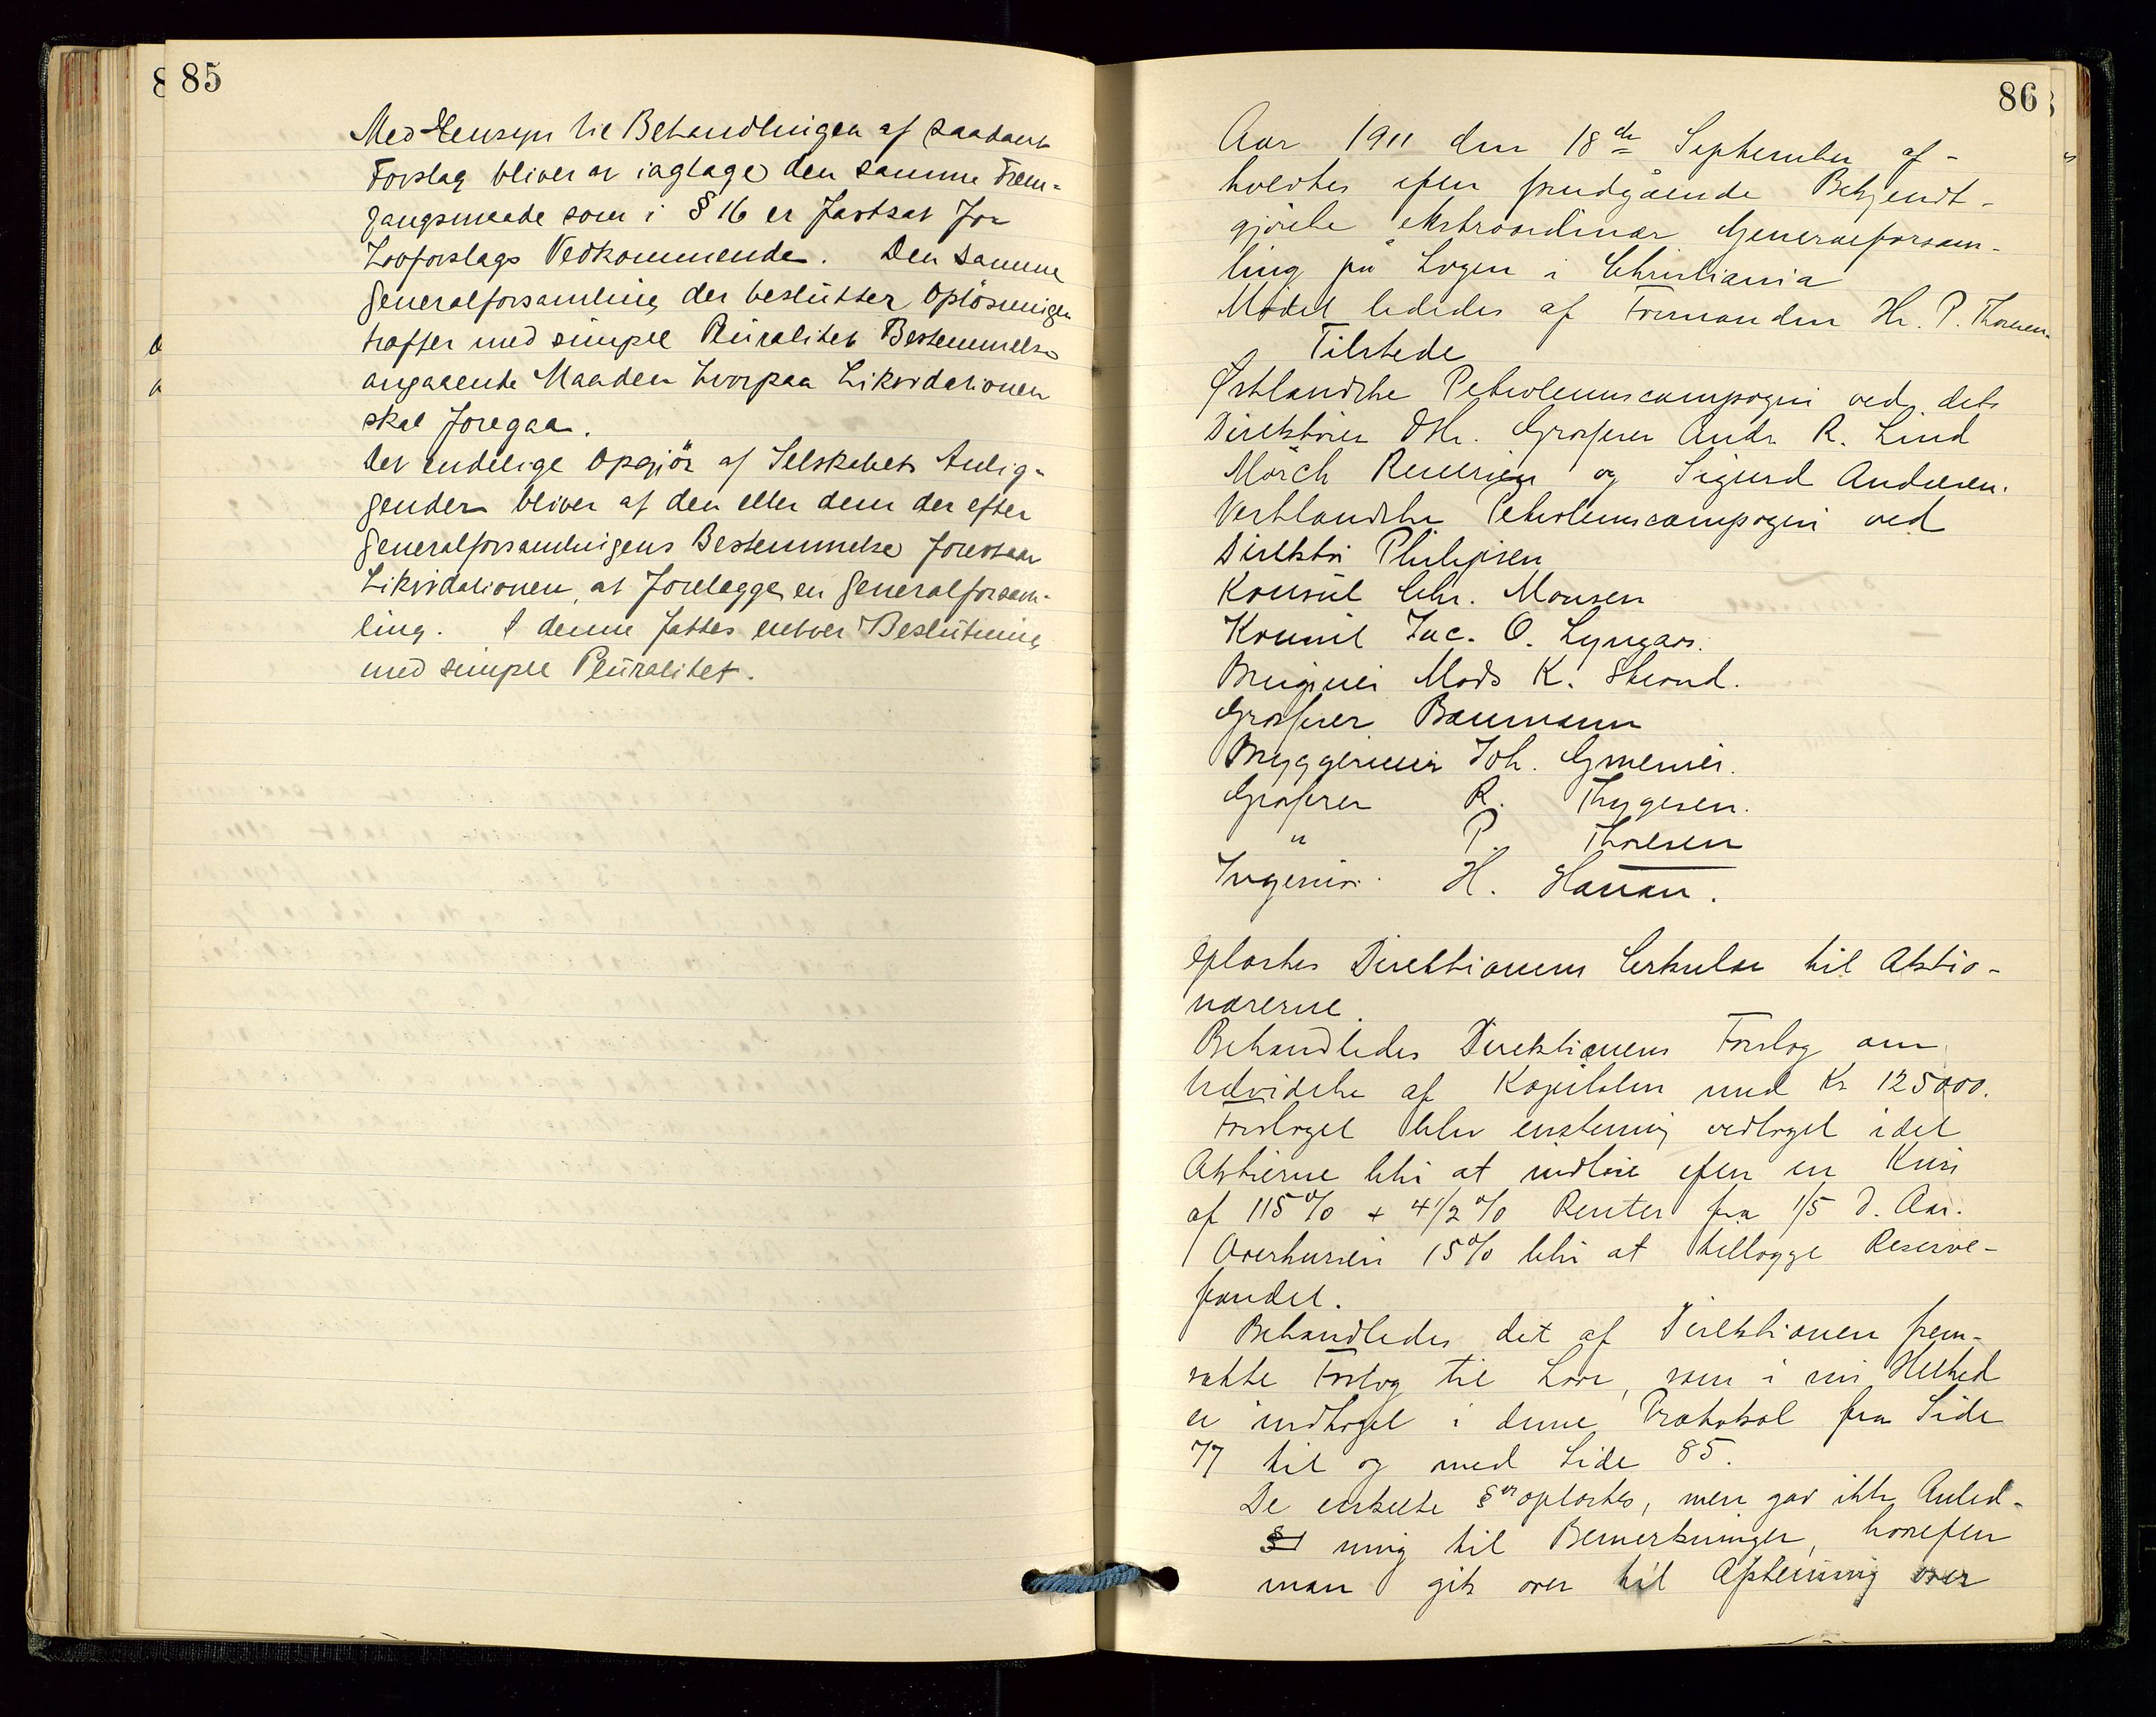 85
Med Hensyn til Behandlingen af saadant
Forslag bliver at iagtage den samme Frem-
gangsmaade som i § 16 er fastsat for
Lovforslags Vedkommende. Den samme
Generalforsamling der beslutter Opløsningen
træffer med simpel Pluralitet Bestemmelse
angaaende Maaden hvorpaa Likvidationen
skal foregaa.
Det endelige Opgjör af Selskabets Anlig-
gender bliver af den eller dem der efter
Generalforsamlingens Bestemmelse forestaar
Likvidationen, at forelægge en Generalforsam-
ling. I denne fattes enhver Beslutning
med simpel Pluralitet.
86
Aar 1911 den 18de September af-
holdtes efter forudgående Bekjendt-
gjörelse ekstraordinær Generalforsam-
ling på Logen i Christiania
Mødet lededes af Formanden Hr. P. Thoresen.
Tilstede
Østlandske Petroleumscompagni ved dets
Direktører DHr. Grosserer Andr. R. Lind
Mörch Reiersen og Sigurd Andresen.
Vestlandske Petroleumscompagni ved
Direktör Philipsen
Konsul Chr. Monsen
Konsul Jac. O. Lyngaas.
Mads K. Strand.
Grosserer Baumann
Bryggerieier Joh.
Grosserer R. Thygesen.
" P. Thoresen
Ingeniör H. Hanan.
Oplæstes Direktionens Cirkulær til Aktio-
nærerne.
Behandledes Direktionens Forslag om
Udvidelse af Kapitalen med Kr 125000.
Forslaget blev enstemmig vedtaget idet
Aktierne blir at indløse efter en Kurs
af 115% + 4 1/2 % Renter fra 1/5 d. Aar.
Overkursen 15% blir at tillægge Reserve-
fondet.
Behandledes det af Direktionen frem-
satte Forslag til Love, som i sin Helhed
er indtaget i denne Protokol fra Side
77 til og med Side 85.
De enkelte §er oplæstes, men gav ikke Anled-
ning til Bemerkninger, hvorefter
man gik over til Afstemning over